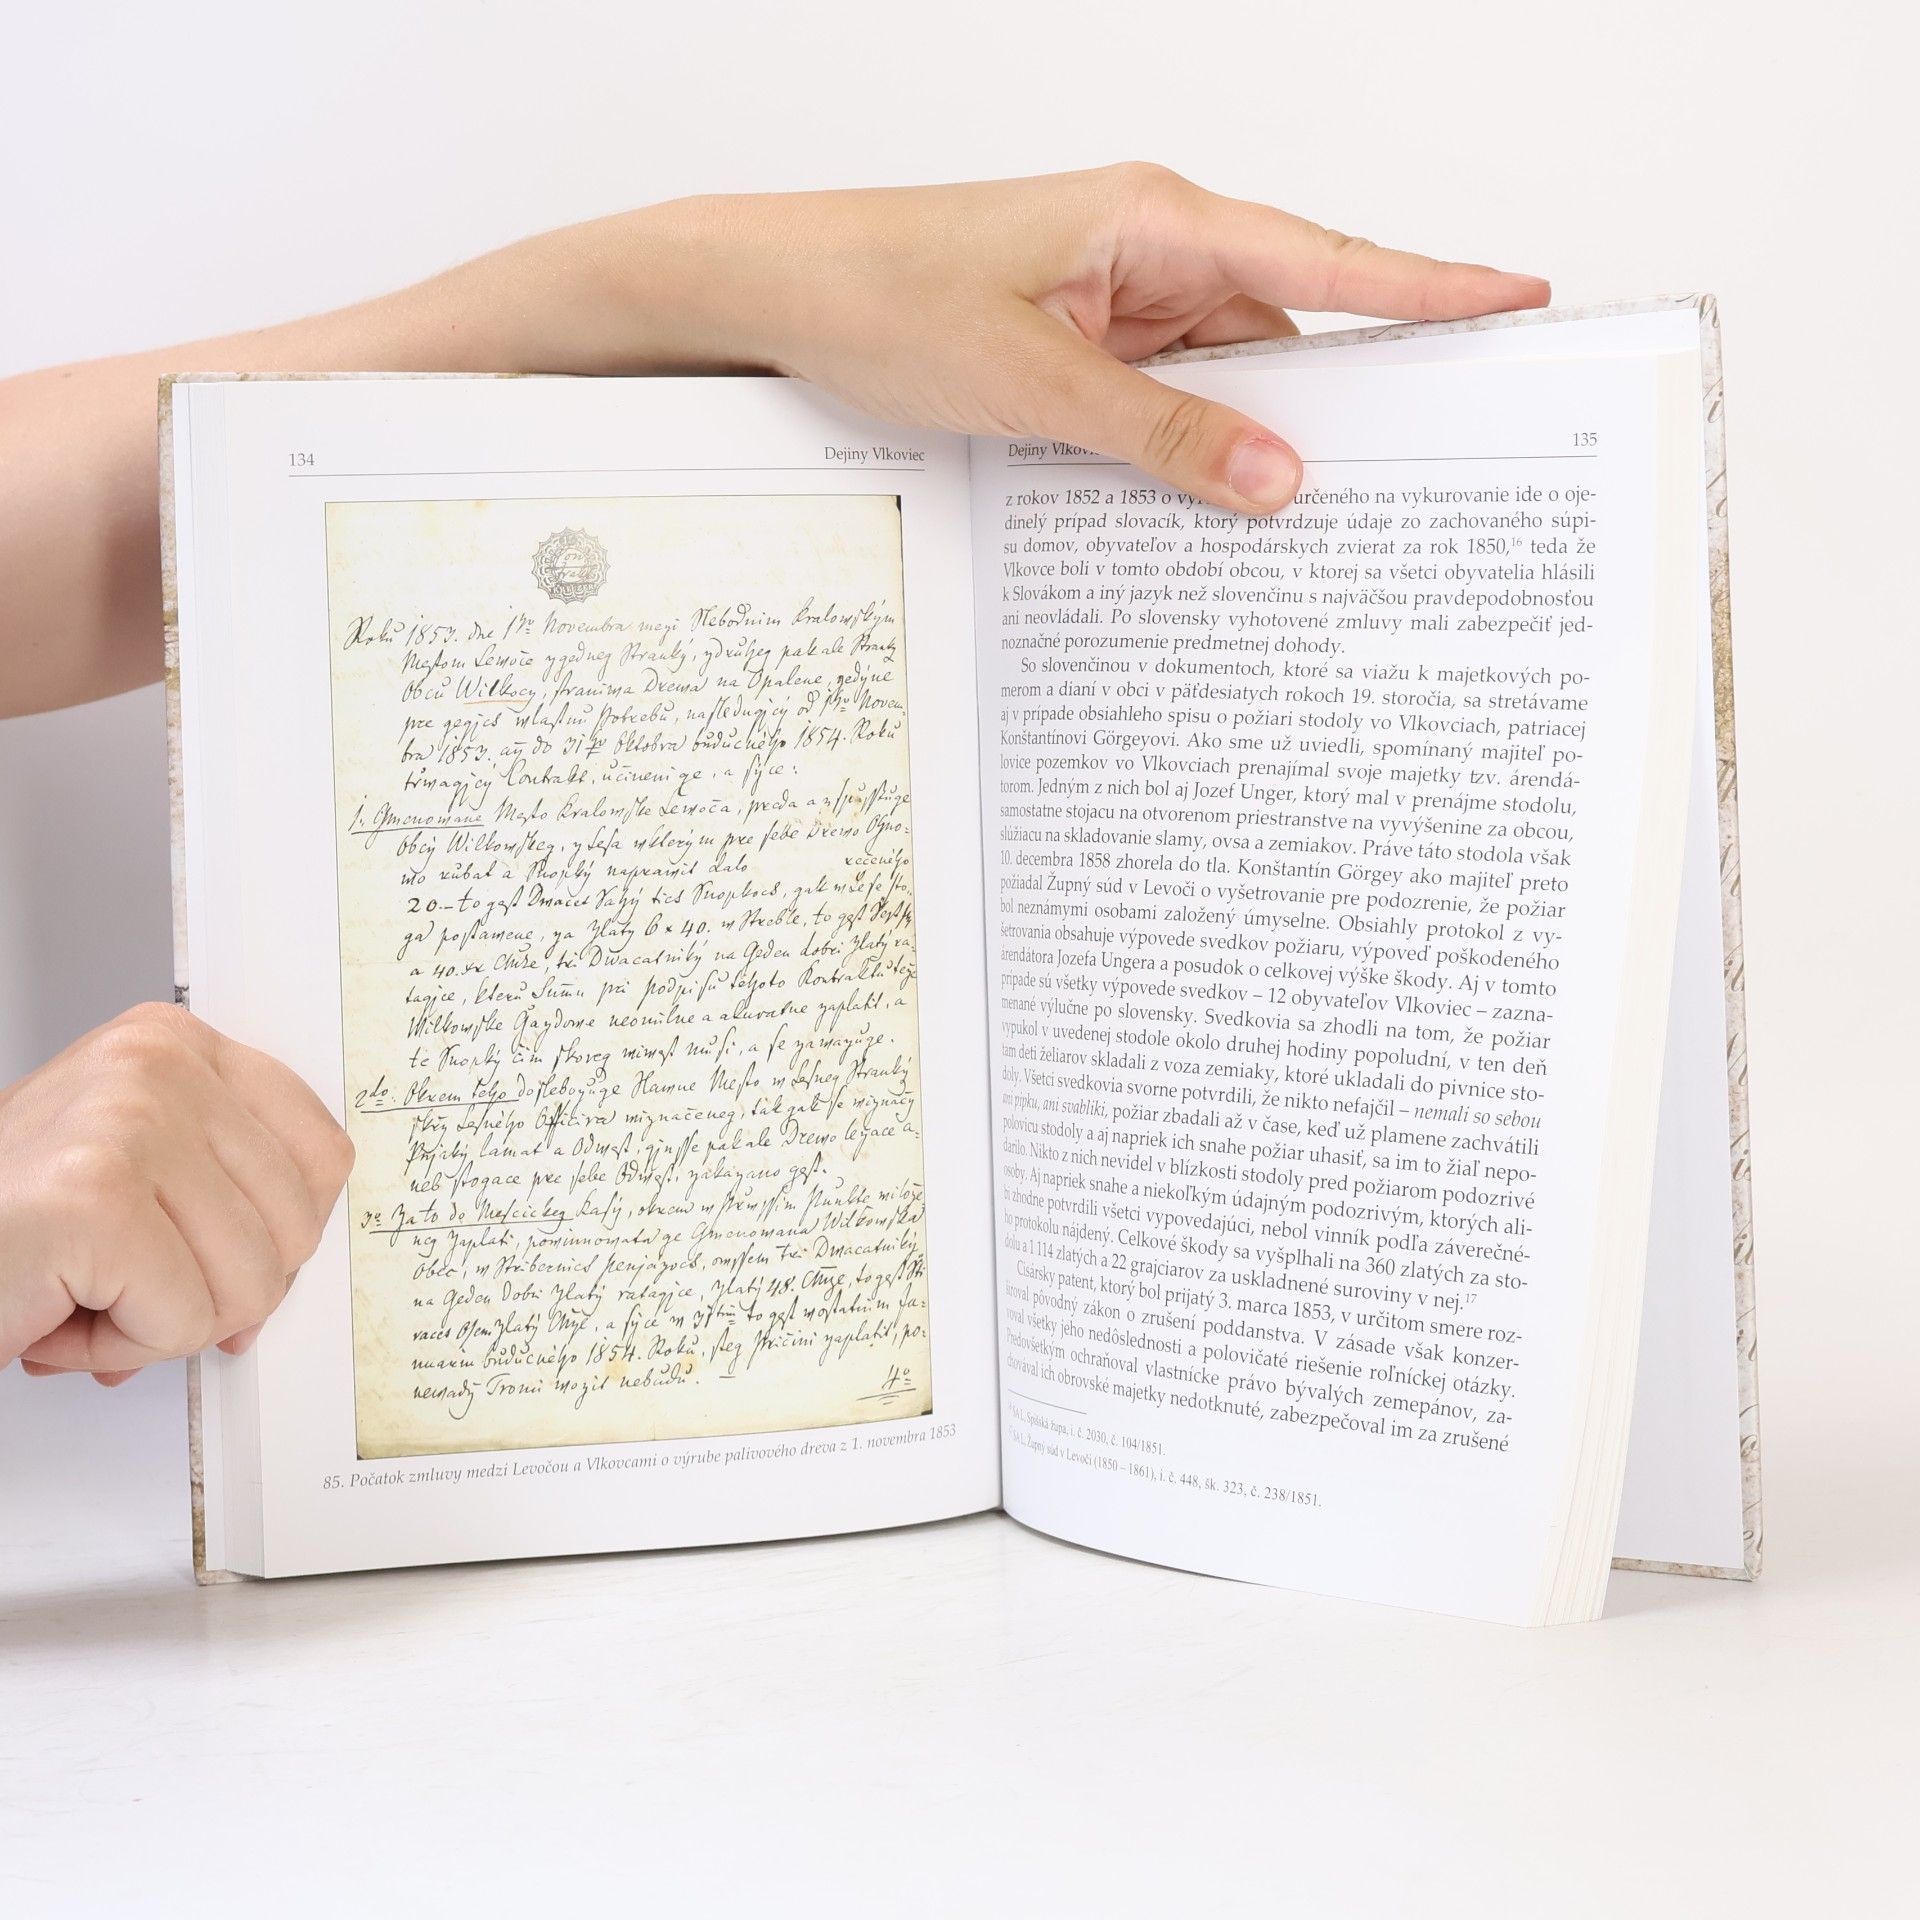 134
Dejiny Vlkoviec
Roku 1853. dne 1ho Novembra mezi Slebodnim Kralowským
Mestom Lewoče z gedneg Stranky, z druheg pak ale Stranky
Obcu Wilkocy, straniwa Drewa na Opalene, gedýne
pre gegjcs wlastnu Potrebu, nasledugjcý od 1ho Novem-
bra 1853. až do 31ho Oktobra buducného 1854. Roku
trwagjcý Contrakt, učineni ge, a sýce:
1. Gmenowane Mesto Kralowske Lewoča, preda a
Obcý Wilkowskeg, z Lesa w kterým pre sebe Drewo Ohno-
wo rubat a Snopký naprawit dalo rečeného
20.– to gest Dwacet Sahý tics Snopkocs, gak w Lese sto-
ga postawene, za Zlatý 6 x 40. w Streble, to gest Šest
a 40. xr Chuže, tri Dwacatniký na Geden dobri Zlatý ra-
tagjce, kteru Sumu pri podpisu tehoto Kontraktu teže
Wilkowske Gazdowe neomilne a akuratne zaplatit, a
te Snopký čim skoreg wiwest musi, a se zawazuge.
2do. Okrem teho doslebozuge Hawne Mesto w Lesneg Stranký
skrz Lesného Officira wiznačeneg, tak gak se wiznačý
Pnjaký lamat a Odwest, ginsse pak ale Drewo ležace a-
neb stogace pre sebe Odwest, zakazano gest.
3o Za to do Mescickeg Kasý, okrem w Prwssim Punkte wilože-
neg Zaplati, powinnowata ge Gmenowana Wilkowska
Obec, w Stribernics Penjazocs, omssem tri Dwacatniký
na Geden Dobri Zlatý ratagjce, Zlatý 48. Chuže, to gest Šti
racet Osem Zlatý Chuže, a sýce w to gest w ostatnim Ja-
nuarim buducného 1854. Roku, steg Pričini zaplatit, po-
newadž Tromi wozit nebudu.
4o
85. Počatok zmluvy medzi Levočou a Vlkovcami o výrube palivového dreva z 1. novembra 1853
Dejiny
135
z rokov 1852 a 1853 o určeného na vykurovanie ide o oje-
dinelý prípad slovacík, ktorý potvrdzuje údaje zo zachovaného súpi-
su domov, obyvateľov a hospodárskych zvierat za rok 1850,16 teda že
Vlkovce boli v tomto období obcou, v ktorej sa všetci obyvatelia hlásili
k Slovákom a iný jazyk než slovenčinu s najväčšou pravdepodobnosťou
ani neovládali. Po slovensky vyhotovené zmluvy mali zabezpečiť jed-
noznačné porozumenie predmetnej dohody.
So slovenčinou v dokumentoch, ktoré sa viažu k majetkových po-
merom a dianí v obci v päťdesiatych rokoch 19. storočia, sa stretávame
aj v prípade obsiahleho spisu o požiari stodoly vo Vlkovciach, patriacej
Konštantínovi Görgeyovi. Ako sme už uviedli, spomínaný majiteľ po-
lovice pozemkov vo Vlkovciach prenajímal svoje majetky tzv. árendá-
torom. Jedným z nich bol aj Jozef Unger, ktorý mal v prenájme stodolu,
samostatne stojacu na otvorenom priestranstve na vyvýšenine za obcou,
slúžiacu na skladovanie slamy, ovsa a zemiakov. Práve táto stodola však
10. decembra 1858 zhorela do tla. Konštantín Görgey ako majiteľ preto
požiadal Župný súd v Levoči o vyšetrovanie pre podozrenie, že požiar
bol neznámymi osobami založený úmyselne. Obsiahly protokol z vy-
šetrovania obsahuje výpovede svedkov požiaru, výpoveď poškodeného
árendátora Jozefa Ungera a posudok o celkovej výške škody. Aj v tomto
prípade sú všetky výpovede svedkov – 12 obyvateľov Vlkoviec – zazna-
menané výlučne po slovensky. Svedkovia sa zhodli na tom, že požiar
vypukol v uvedenej stodole okolo druhej hodiny popoludní, v ten deň
tam deti želiarov skladali z voza zemiaky, ktoré ukladali do pivnice sto-
doly. Všetci svedkovia svorne potvrdili, že nikto nefajčil – nemali so sebou
ani pipku, ani svabliki, požiar zbadali až v čase, keď už plamene zachvátili
polovicu stodoly a aj napriek ich snahe požiar uhasiť, sa im to žiaľ nepo-
darilo. Nikto z nich nevidel v blízkosti stodoly pred požiarom podozrivé
osoby. Aj napriek snahe a niekoľkým údajným podozrivým, ktorých ali-
bi zhodne potvrdili všetci vypovedajúci, nebol vinník podľa záverečné-
ho protokolu nájdený. Celkové škody sa vyšplhali na 360 zlatých za sto-
dolu a 1 114 zlatých a 22 grajciarov za uskladnené suroviny v nej.17
Cisársky patent, ktorý bol prijatý 3. marca 1853, v určitom smere roz-
široval pôvodný zákon o zrušení poddanstva. V zásade však konzer-
voval všetky jeho nedôslednosti a polovičaté riešenie roľníckej otázky.
Predovšetkým ochraňoval vlastnícke právo bývalých zemepánov, za-
chovával ich obrovské majetky nedotknuté, zabezpečoval im za zrušené
16 ŠA L, Spišská župa, i. č. 2030, č. 104/1851.
17 ŠA L, Župný súd v Levoči (1850 – 1861), i. č. 448, šk. 323, č. 238/1851.